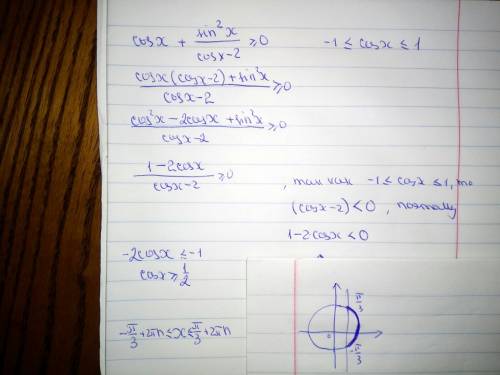 cosx + sin²x/(cosx-2) ≥0 -1 ≤ cosx ≤ 1
(cosx(cosx-2)+sin²x)/(cosx-2) ≥0
(cos²x-2cosx+sin²x)/(cosx-2) ≥0
(1-2cosx)/(cosx-2) ≥0 , так как -1 ≤ cosx ≤ 1, то
(cosx-2)<0 , поэтому
1-2cosx<0
-2cosx ≤ -1
cosx ≥ 1/2
-π/3+2πn ≤ x ≤ π/3+2πn
π/3
0
-π/3